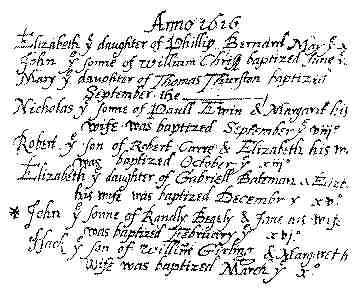 Anno 1616
Elizabeth yᵉ daughter of Phillip Bernard May yᵉ x
John yᵉ sonne of William Christ baptized June
Mary yᵉ daughter of Thomas Thurston baptized
September the
Nicholas yᵉ sonne of Paull Ewin & Margaret his
wife was baptized September yᵉ viijᵒ
Robert yᵉ son of Robert Carre & Elizabeth his w
was baptized October yᵉ
Elizabeth yᵉ daughter of Gabriell Bateman & Eliza
his wife was baptized December yᵉ xvᵒ
* John yᵉ sonne of Randly Begly & Jane his wife
was baptized February yᵉ xvjᵒ
yᵉ son of Willim Girling & Margaret h
wife was baptized March yᵉ xᵒ